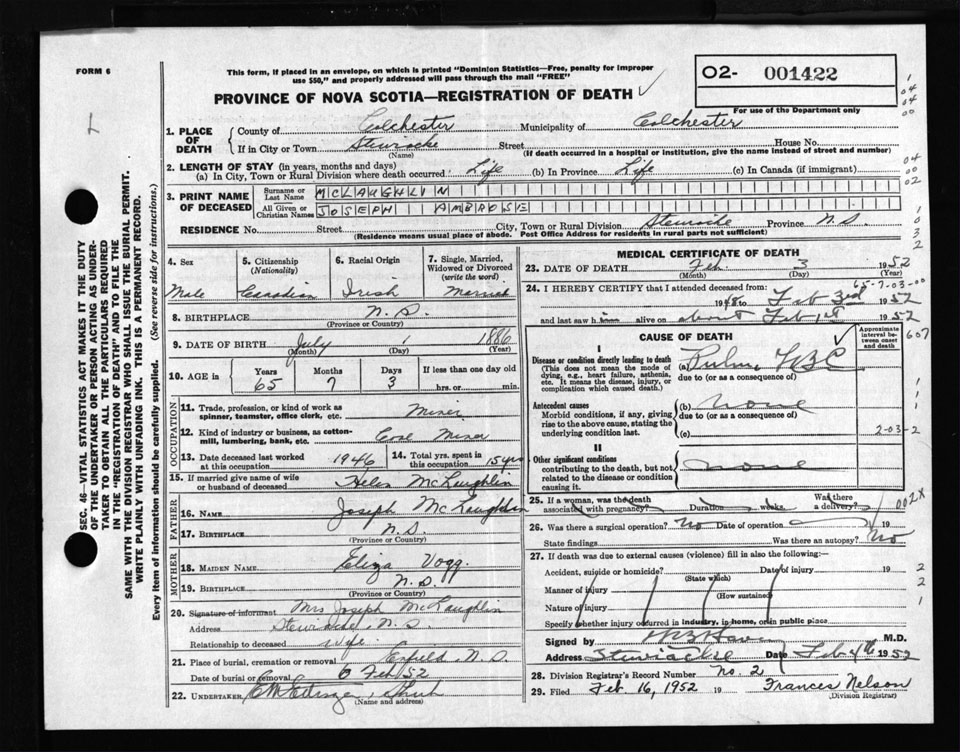 FORM 6
This form, if placed in an envelope, on which is printed "Dominion Statistics—Free, penalty for improper
use $50," and properly addressed will pass through the mail "FREE"
O2- 001422
PROVINCE OF NOVA SCOTIA—REGISTRATION OF DEATH
For use of the Department only
1. PLACE OF DEATH
County of Colchester Municipality of Colchester
If in City or Town Stewiacke Street House No.
(Name) (If death occurred in a hospital or institution, give the name instead of street and number)
2. LENGTH OF STAY (in years, months and days)
(a) In City, Town or Rural Division where death occurred Life (b) In Province Life (c) In Canada (if immigrant)
3. PRINT NAME OF DECEASED
Surname or Last Name MCLAUGHLIN
All Given or Christian Names JOSEPH AMBROSE
RESIDENCE No. Street City, Town or Rural Division Stewiacke Province N.S.
(Residence means usual place of abode. Post Office Address for residents in rural parts not sufficient)
4. Sex
Male
5. Citizenship
(Nationality)
Canadian
6. Racial Origin
Irish
7. Single, Married,
Widowed or Divorced
(write the word)
Married
8. BIRTHPLACE N.S.
(Province or Country)
9. DATE OF BIRTH July 1 1886
(Month) (Day) (Year)
10. AGE in Years Months Days If less than one day old
65 7 3 hrs. or min.
OCCUPATION
11. Trade, profession, or kind of work as
spinner, teamster, office clerk, etc. Miner
12. Kind of industry or business, as cotton-
mill, lumbering, bank, etc. Miner
13. Date deceased last worked
at this occupation 1946
14. Total yrs. spent in
this occupation 15 yrs
15. If married give name of wife
or husband of deceased Helen McLaughlin
FATHER
16. NAME Joseph McLaughlin
17. BIRTHPLACE N.S.
(Province or Country)
MOTHER
18. MAIDEN NAME Eliza Vogg.
19. BIRTHPLACE N.S.
(Province or Country)
20. Signature of informant Mrs Joseph McLaughlin
Address Stewiacke, N.S.
Relationship to deceased Wife
21. Place of burial, cremation or removal Enfield, N.S.
Date of burial or removal 6 Feb 52
22. UNDERTAKER
(Name and address)
MEDICAL CERTIFICATE OF DEATH
23. DATE OF DEATH Feb 3 1952
(Month) (Day) (Year)
65-7-03-00
24. I HEREBY CERTIFY that I attended deceased from:
1948 to Feb 3rd 1952
and last saw him alive on about Feb 1st 1952
CAUSE OF DEATH
Approximate
interval be-
tween onset
and death
607
I
Disease or condition directly leading to death
(This does not mean the mode of
dying, e.g., heart failure, asthenia,
etc. It means the disease, injury, or
complication which caused death.)
(a)
due to (or as a consequence of)
Antecedent causes
Morbid conditions, if any, giving
rise to the above cause, stating the
underlying condition last.
(b) none
due to (or as a consequence of)
(c)
2-03-2
II
Other significant conditions
contributing to the death, but not
related to the disease or condition
causing it.
none
25. If a woman, was the death
associated with pregnancy? Duration weeks. Was there
a delivery?
002X
26. Was there a surgical operation? No Date of operation 19
State findings Was there an autopsy? No
27. If death was due to external causes (violence) fill in also the following:—
Accident, suicide or homicide? Date of injury 19
(State which)
Manner of injury
(How sustained)
Nature of injury
Specify whether injury occurred in industry, in home, or in public place
Signed by M.D.
Address Stewiacke Date Feb 4th 1952
28. Division Registrar's Record Number No. 2
29. Filed Feb 16, 1952 19 Frances Nelson
(Division Registrar)
SEC. 46—VITAL STATISTICS ACT MAKES IT THE DUTY
OF THE UNDERTAKER OR PERSON ACTING AS UNDER-
TAKER TO OBTAIN ALL THE PARTICULARS REQUIRED
IN THE "REGISTRATION OF DEATH" AND TO FILE THE
SAME WITH THE DIVISION REGISTRAR WHO SHALL ISSUE THE BURIAL PERMIT.
WRITE PLAINLY WITH UNFADING INK. THIS IS A PERMANENT RECORD.
Every item of information should be carefully supplied. (See reverse side for instructions.)